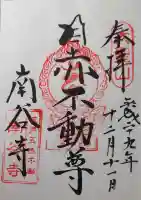 奉拝
平成二十九年
十二月十一日
目赤不動尊
南谷寺